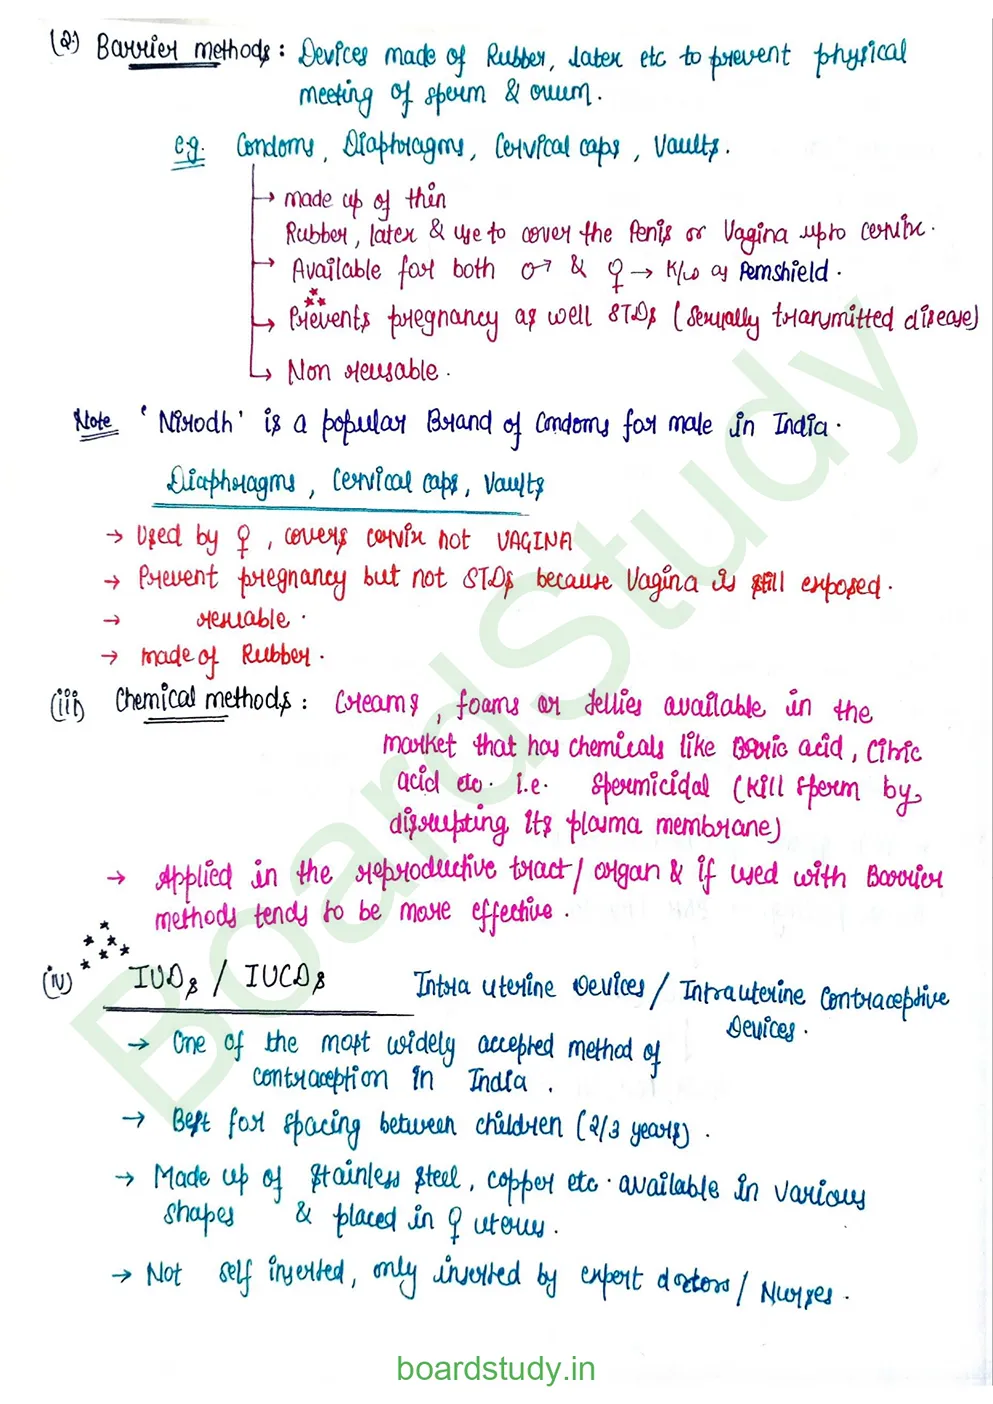 (2) Barrier methods : Devices made of Rubber, latex etc to prevent physical
meeting of sperm & ovum.
e.g. Condoms, Diaphragms, Cervical caps, Vaults.
→ made up of thin
Rubber, latex & use to cover the Penis or Vagina upto cervix.
→ Available for both ♂ & ♀ → K/w as Femshield.
→ Prevents pregnancy as well STDs (Sexually transmitted disease)
→ Non reusable.
Note 'Nirodh' is a popular Brand of Condoms for male in India.
Diaphragms, Cervical caps, Vaults
→ Used by ♀, covers cervix not VAGINA
→ Prevent pregnancy but not STDs because Vagina is still exposed.
→ reusable.
→ made of Rubber.
(iii) Chemical methods : Creams, foams or Jellies available in the
market that has chemicals like Boric acid, Citric
acid etc. i.e. Spermicidal (Kill Sperm by
disrupting its plasma membrane)
→ Applied in the reproductive tract / organ & if used with Barrier
methods tends to be more effective.
(iv) IUDs / IUCDs Intra uterine Devices / Intrauterine Contraceptive
Devices.
→ One of the most widely accepted method of
contraception in India.
→ Best for spacing between children (2/3 years).
→ Made up of stainless steel, copper etc. available in various
shapes & placed in ♀ uterus.
→ Not self inserted, only inserted by expert doctors / Nurses.
BoardStudy
boardstudy.in